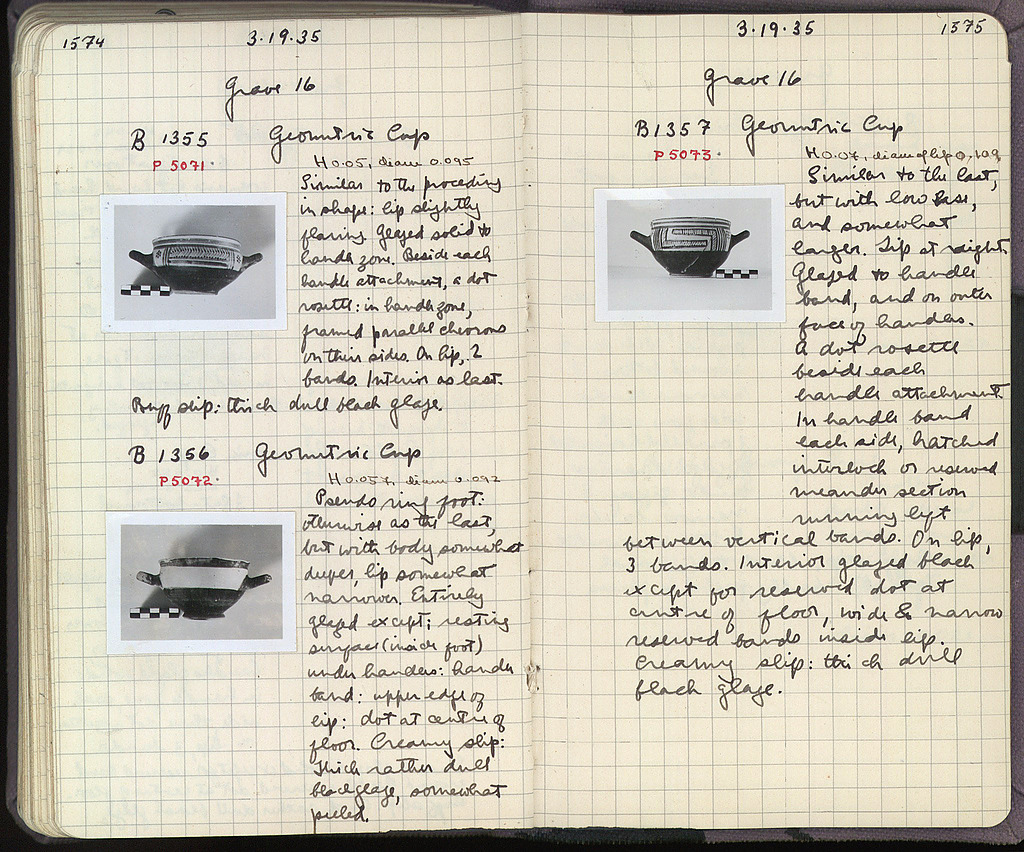 1574
3·19·35
Grave 16
B 1355 Geometric Cup
P 5071·
H 0.05, diam 0.095
Similar to the preceding
in shape: lip slightly
flaring. Glazed solid to
handle zone. Beside each
handle attachment, a dot
rosette: in handle zone,
framed parallel chevrons
on their sides. On lip, 2
bands. Interior as last.
Buff slip: thick dull black glaze.
B 1356 Geometric Cup
P 5072·
H 0.057, diam 0.092
Pseudo ring foot:
otherwise as the last,
but with body somewhat
deeper, lip somewhat
narrower. Entirely
glazed except: resting
surface (inside foot)
under handles: handle
band: upper edge of
lip: dot at centre of
floor. Creamy slip:
thick rather dull
black glaze, somewhat
peeled.
3·19·35
1575
Grave 16
B 1357 Geometric Cup
P 5073·
H 0.07, diam of lip 0.109
Similar to the last,
but with low base,
and somewhat
larger. Lip at right
Glazed to handle
band, and on outer
face of handles.
A dot rosette
beside each
handle attachment.
In handle band
each side, hatched
interlock or reserved
meander section
running left
between vertical bands. On lip,
3 bands. Interior glazed black
except for reserved dot at
centre of floor, wide & narrow
reserved bands inside lip.
Creamy slip: thick dull
black glaze.